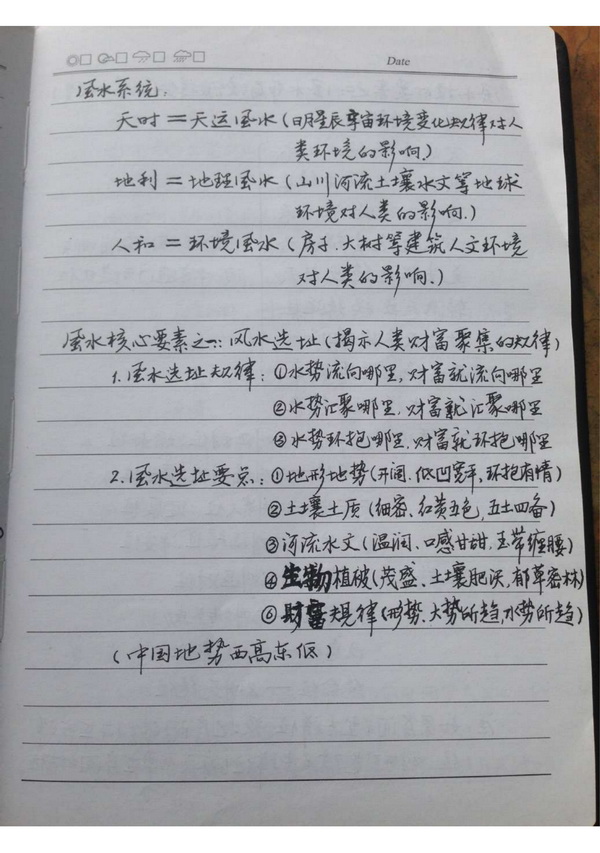 Date
风水系统：
天时＝天运风水（日月星辰宇宙环境变化规律对人
类环境的影响。）
地利＝地理风水（山川河流土壤水文等地球
环境对人类的影响。）
人和＝环境风水（房子、大树等建筑人文环境
对人类的影响。）
风水核心要素之一：风水选址（揭示人类财富聚集的规律）
1.风水选址规律：①水势流向哪里，财富就流向哪里
②水势汇聚哪里，财富就汇聚哪里
③水势环抱哪里，财富就环抱哪里
2.风水选址要点：①地形地势（开阔、低凹宽平，环抱有情）
②土壤土质（细密、红黄五色，五土四备）
③河流水文（温润、口感甘甜，玉带缠腰）
④生物植破（茂盛、土壤肥沃，郁草密林）
⑤财富规律（形势、大势所趋，水势所趋）
（中国地势西高东低）